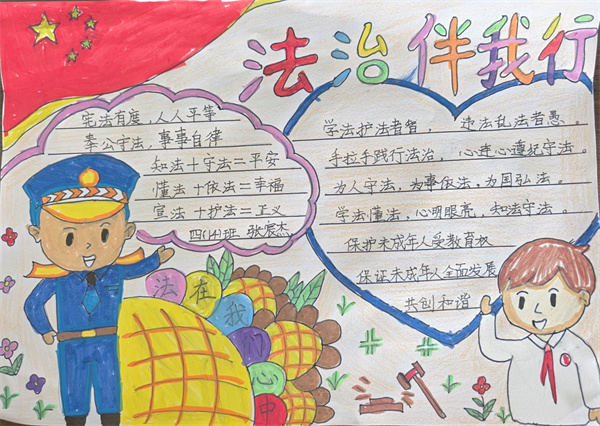 法治伴我行
宪法有度，人人平等
奉公守法，事事自律
知法＋守法＝平安
懂法＋依法＝幸福
宣法＋护法＝正义
四(14)班 张宸杰
学法护法者智，违法乱法者愚。
手拉手践行法治，心连心遵纪守法。
为人守法，为事依法，为国弘法。
学法懂法，心明眼亮，知法守法。
保护未成年人受教育权
保证未成年人全面发展
共创和谐
法在我心中